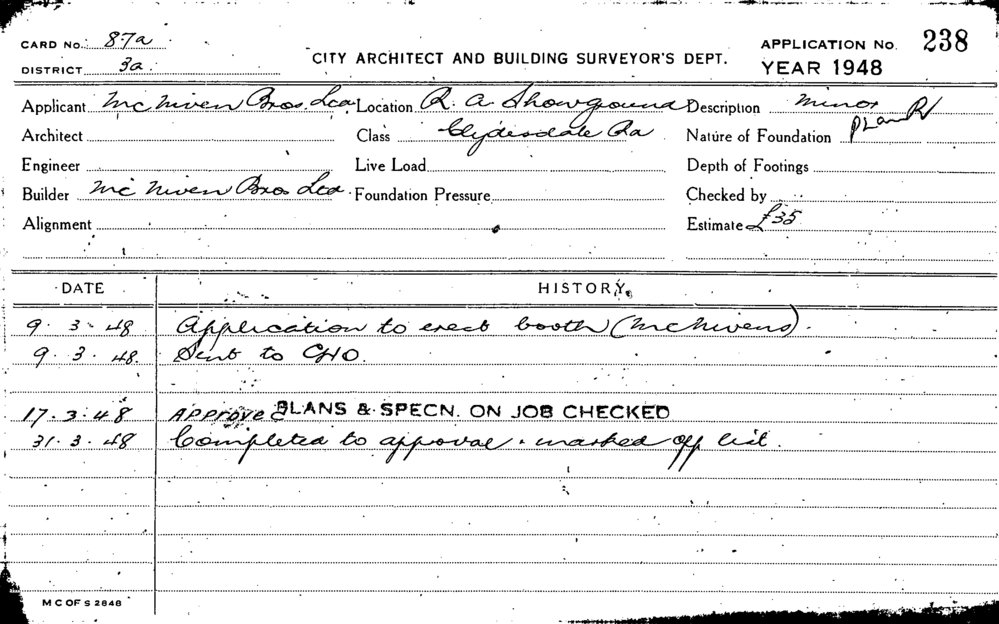 CARD No. 87a
CITY ARCHITECT AND BUILDING SURVEYOR'S DEPT.
APPLICATION No. 238
DISTRICT 3a
YEAR 1948
Applicant McNiven Bros. Ltd Location R. A. Showground Description Minor
Architect Class Clydesdale Rd Nature of Foundation Plan
Engineer Live Load Depth of Footings
Builder McNiven Bros Ltd. Foundation Pressure Checked by
Alignment Estimate £35
DATE HISTORY
9. 3. 48 Application to erect booth (McNivens).
9. 3. 48. Sent to CHO.
17. 3. 48 Approved PLANS & SPECN. ON JOB CHECKED
31. 3. 48 Completed to approval. marked off list.
M C OF S 2848